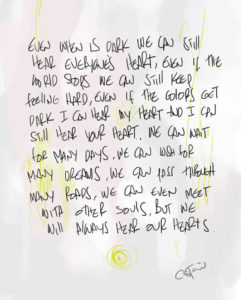 EVEN WHEN IS DARK WE CAN STILL
HEAR EVERYONES HEART, EVEN IF THE
WORLD STOPS WE CAN STILL KEEP
FEELING HARD, EVEN IF THE COLORS GET
DARK I CAN HEAR MY HEART AND I CAN
STILL HEAR YOUR HEART. WE CAN WAIT
FOR MANY DAYS, WE CAN WISH FOR
MANY DREAMS, WE CAN PASS THROUGH
MANY ROADS, WE CAN EVEN MEET
WITH OTHER SOULS, BUT WE
WILL ALWAYS HEAR OUR HEARTS.